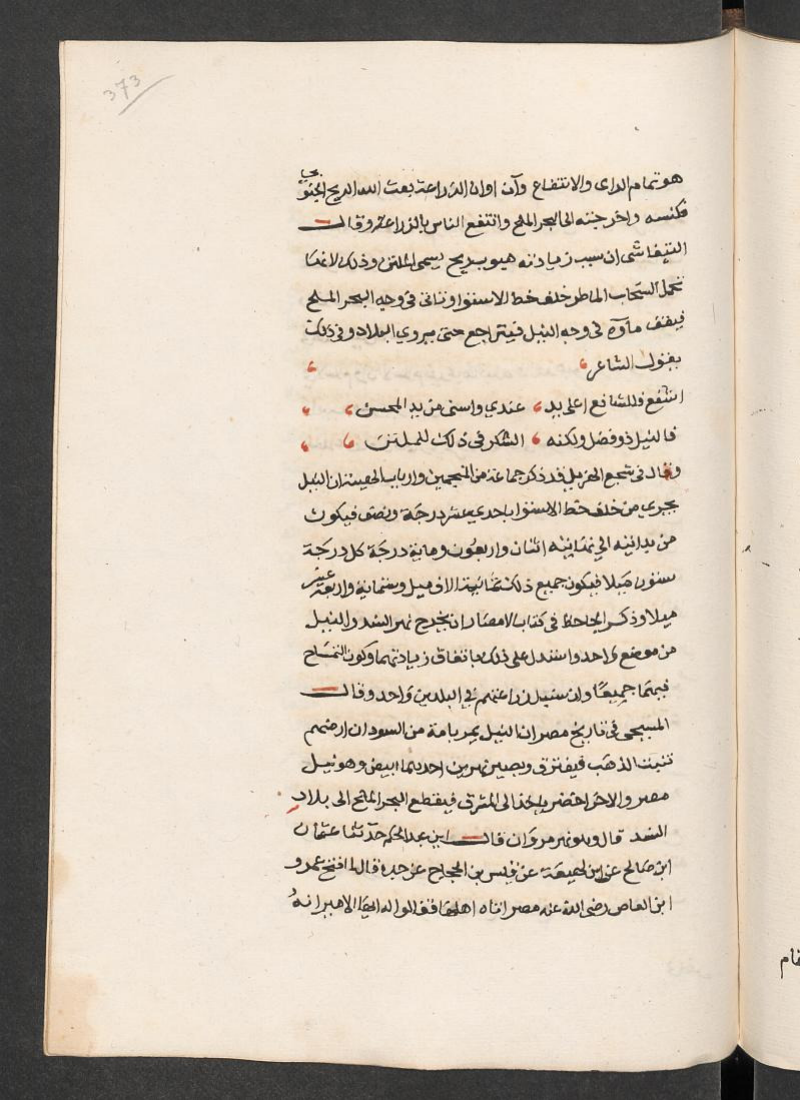 373
هو تمام الراى والانتفاع وآن اوان الزراعة بعث الله الريح الجنوبى
فكنسه واخرجته الى البحر الملح وانتفع الناس بالزراعة وقال
التيفاشى ان سبب زيادته هبوب ريح يسمى الملتن وذلك لانها
تحمل السحاب الماطر خلف خط الاستوا وتاتى فى وجه البحر الملح
فيقف ماؤه فى وجه النيل فيتراجع حتى يروي البلاد وفى ذلك
يقول الشاعر
اشفع فللشافع اعلى يد عندي واسنى من يد المحسن
فالنيل ذو فضل ولكنه الشكر فى ذلك للملتن
وقال فى سجع الهزيل قد ذكر جماعة من المنجمين وارباب الهيئة ان النيل
يجري من خلف خط الاستوا باحدي عشر درجة ونصف فيكون
من بدايته الي نهايته اثنان واربعون وماية درجة كل درجة
ستون ميلا فيكون جميع ذلك ثمانية الاف ميل وستماية واربعة عشر
ميلا وذكر الجاحظ فى كتاب الامصار ان مخرج نهر السند والنيل
من موضع واحد واستدل على ذلك باتفاق زيادتهما وكون التمساح
فيهما جميعا وان سبيل زراعتهم فى البلدين واحد وقال
المسبحى فى تاريخ مصر ان النيل يمر بامة من السودان ارضهم
تنبت الذهب فيفترق ويصير نهرين احديهما ابيض وهو نيل
مصر والاخر اخضر ياخذ الى المشرق فيقطع البحر الملح الى بلاد
السند قال وهو نهر مروان قال ابن عبد الحكم حدثنا عثمان
ابن صالح عن ابن لهيعة عن قيس بن الحجاج عن جده قال لما افتتح عمرو
ابن العاص رضى الله عنه مصر اتاه اهلها فقالوا له ايها الامير انه